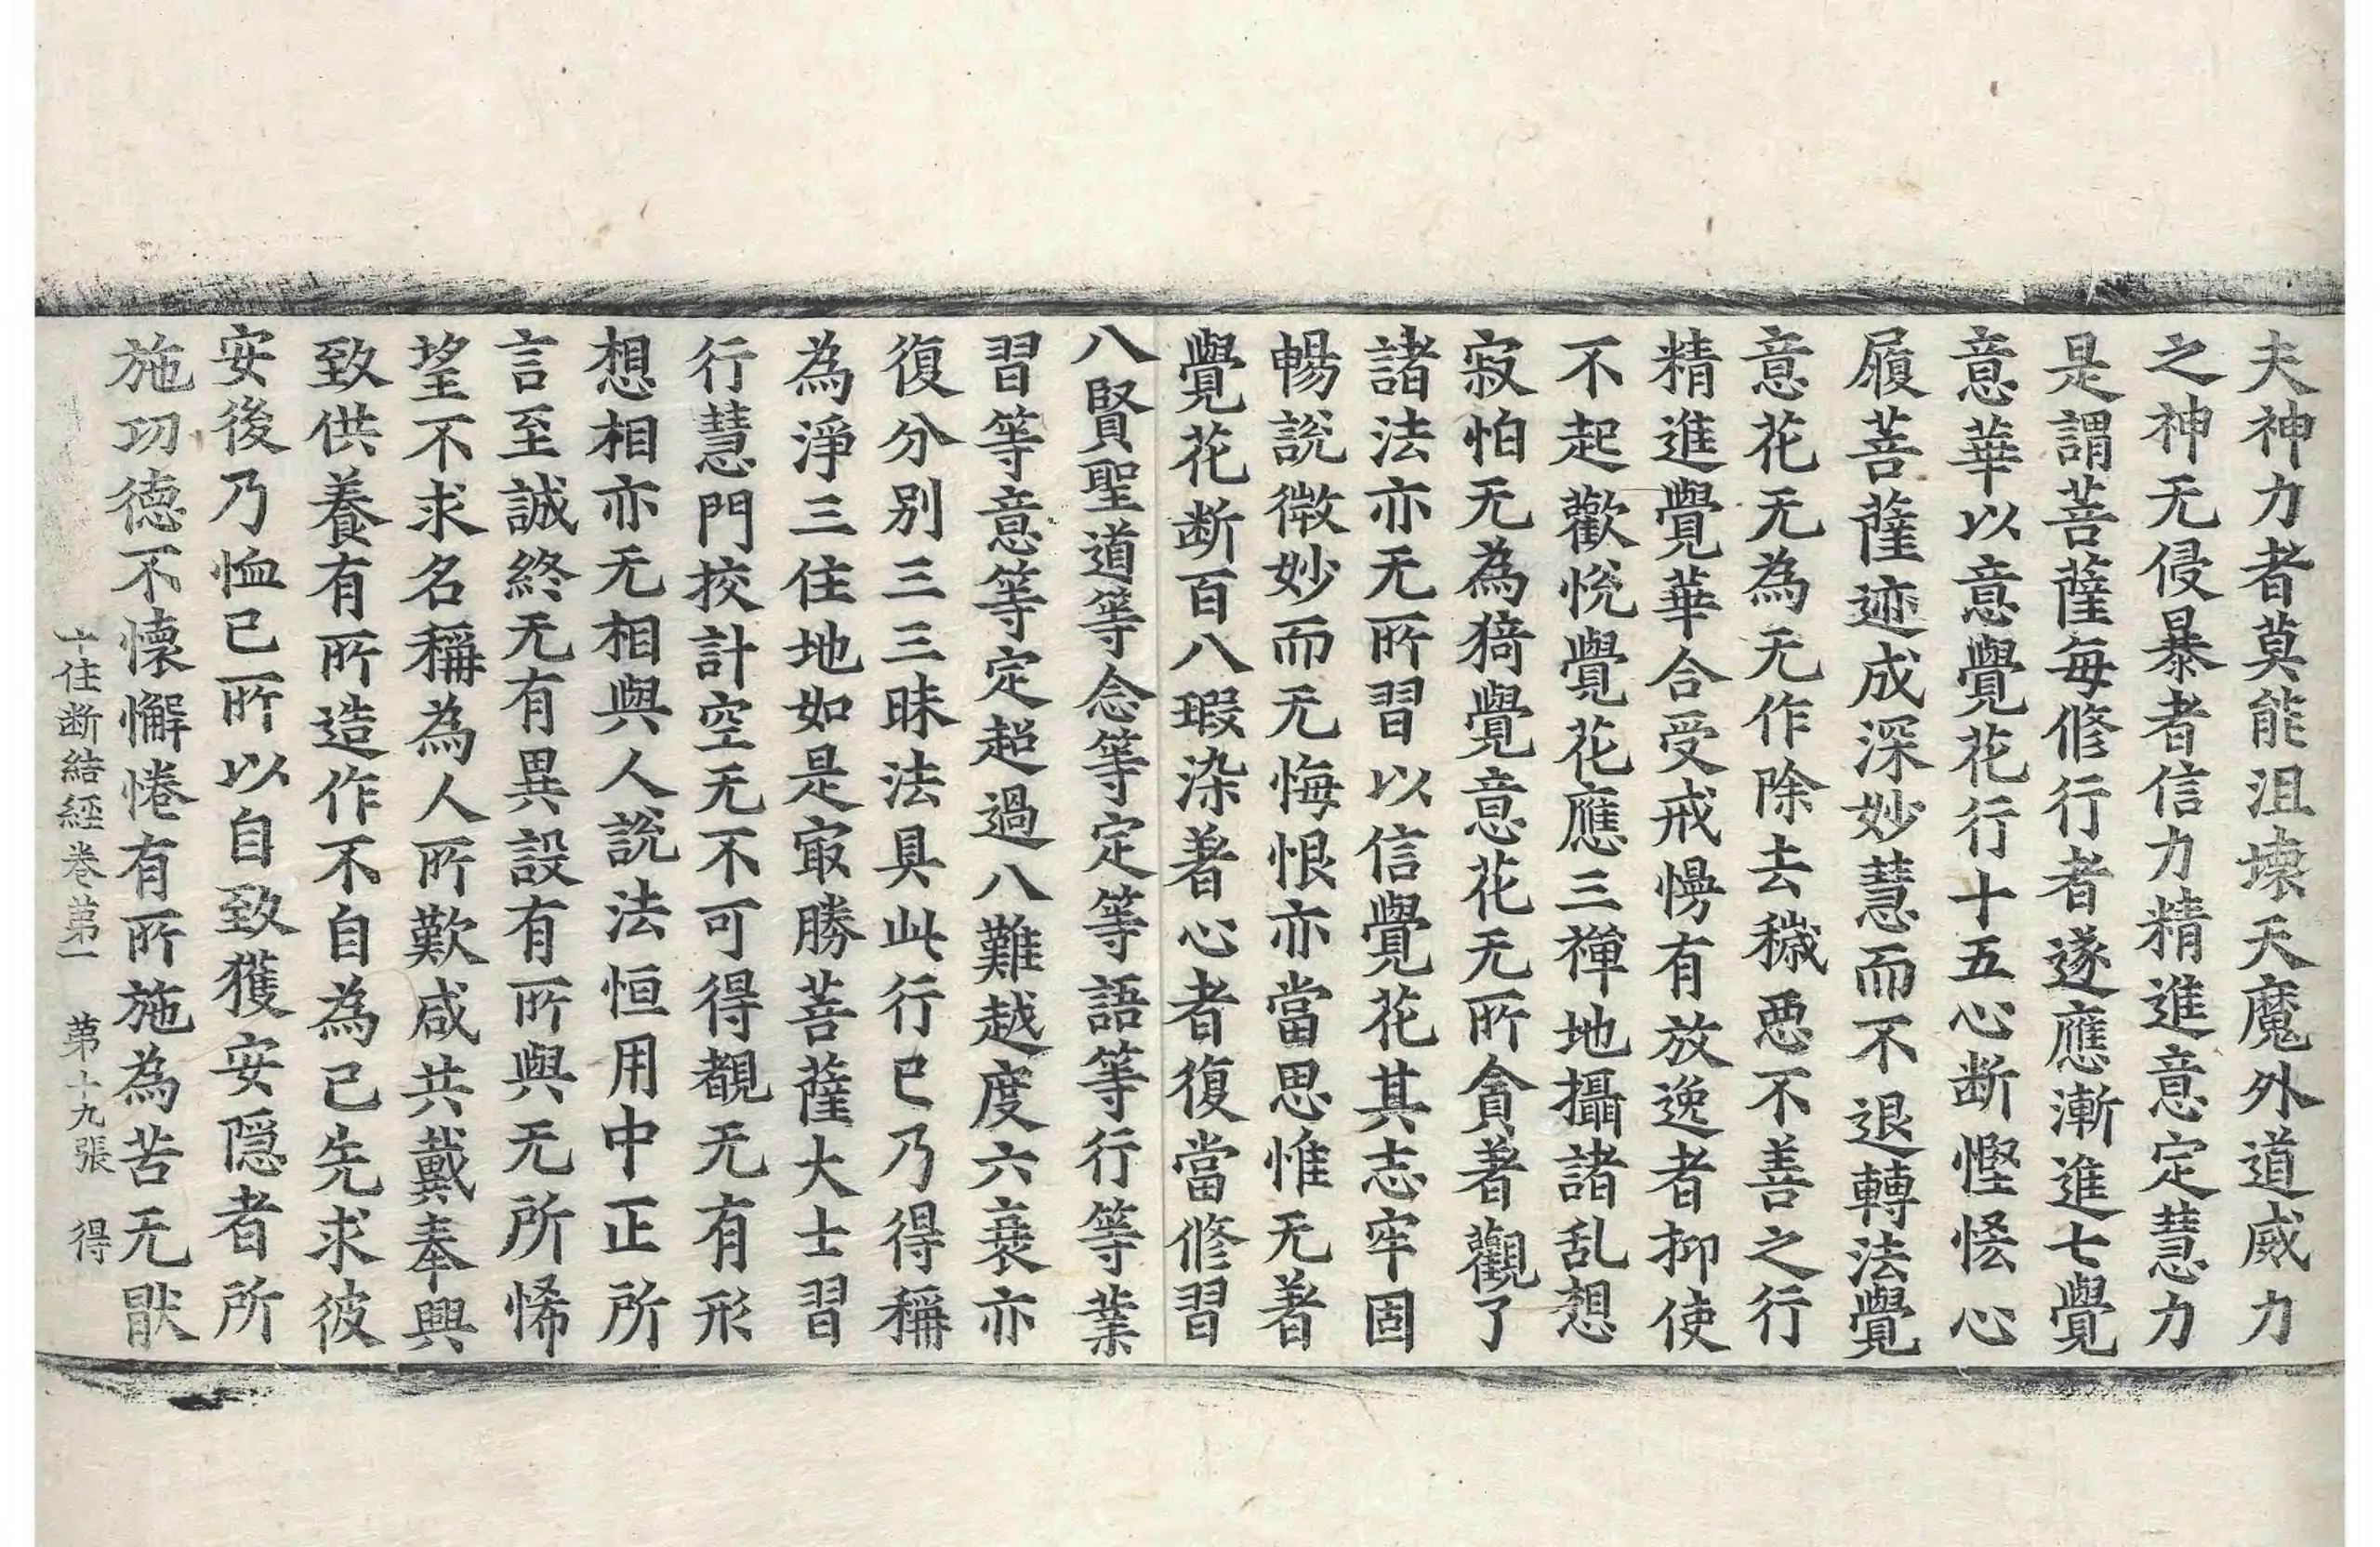 夫神力者莫能沮壞天魔外道威力
之神无侵暴者信力精進意定慧力
是謂菩薩每修行者遂應漸進七覺
意華以意覺花行十五心断慳悋心
履菩薩迹成深妙慧而不退轉法覺
意花无為无作除去穢惡不善之行
精進覺華合受戒慢有放逸者抑使
不起歡悅覺花應三禪地攝諸乱想
寂怕无為猗覺意花无所貪著觀了
諸法亦无所習以信覺花其志牢固
暢說微妙而无悔恨亦當思惟无著
覺花断百八瑕染著心者復當修習
八賢聖道等念等定等語等行等業
習等意等定超過八難越度六衰亦
復分別三三昧法具此行已乃得稱
為淨三住地如是㝡勝菩薩大士習
行慧門挍計空无不可得覩无有形
想相亦无相與人說法恒用中正所
言至誠終无有異設有所與无所悕
望不求名稱為人所歎咸共戴奉興
致供養有所造作不自為己先求彼
安後乃恤己所以自致獲安隱者所
施功德不懷懈惓有所施為苦无猒
十住断結經卷第一 第十九張 得